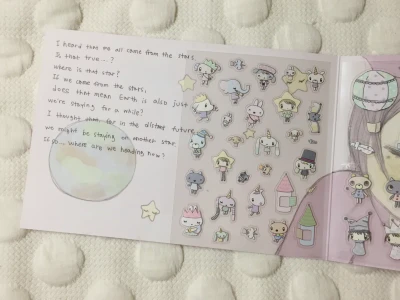 I heard that we all came from the stars.
Is that true...?
Where is that star?
If we come from the stars,
does that mean Earth is also just a place
we're staying for a while?
I thought that far in the distant future
we might be staying on another star.
If so... where are we heading now?